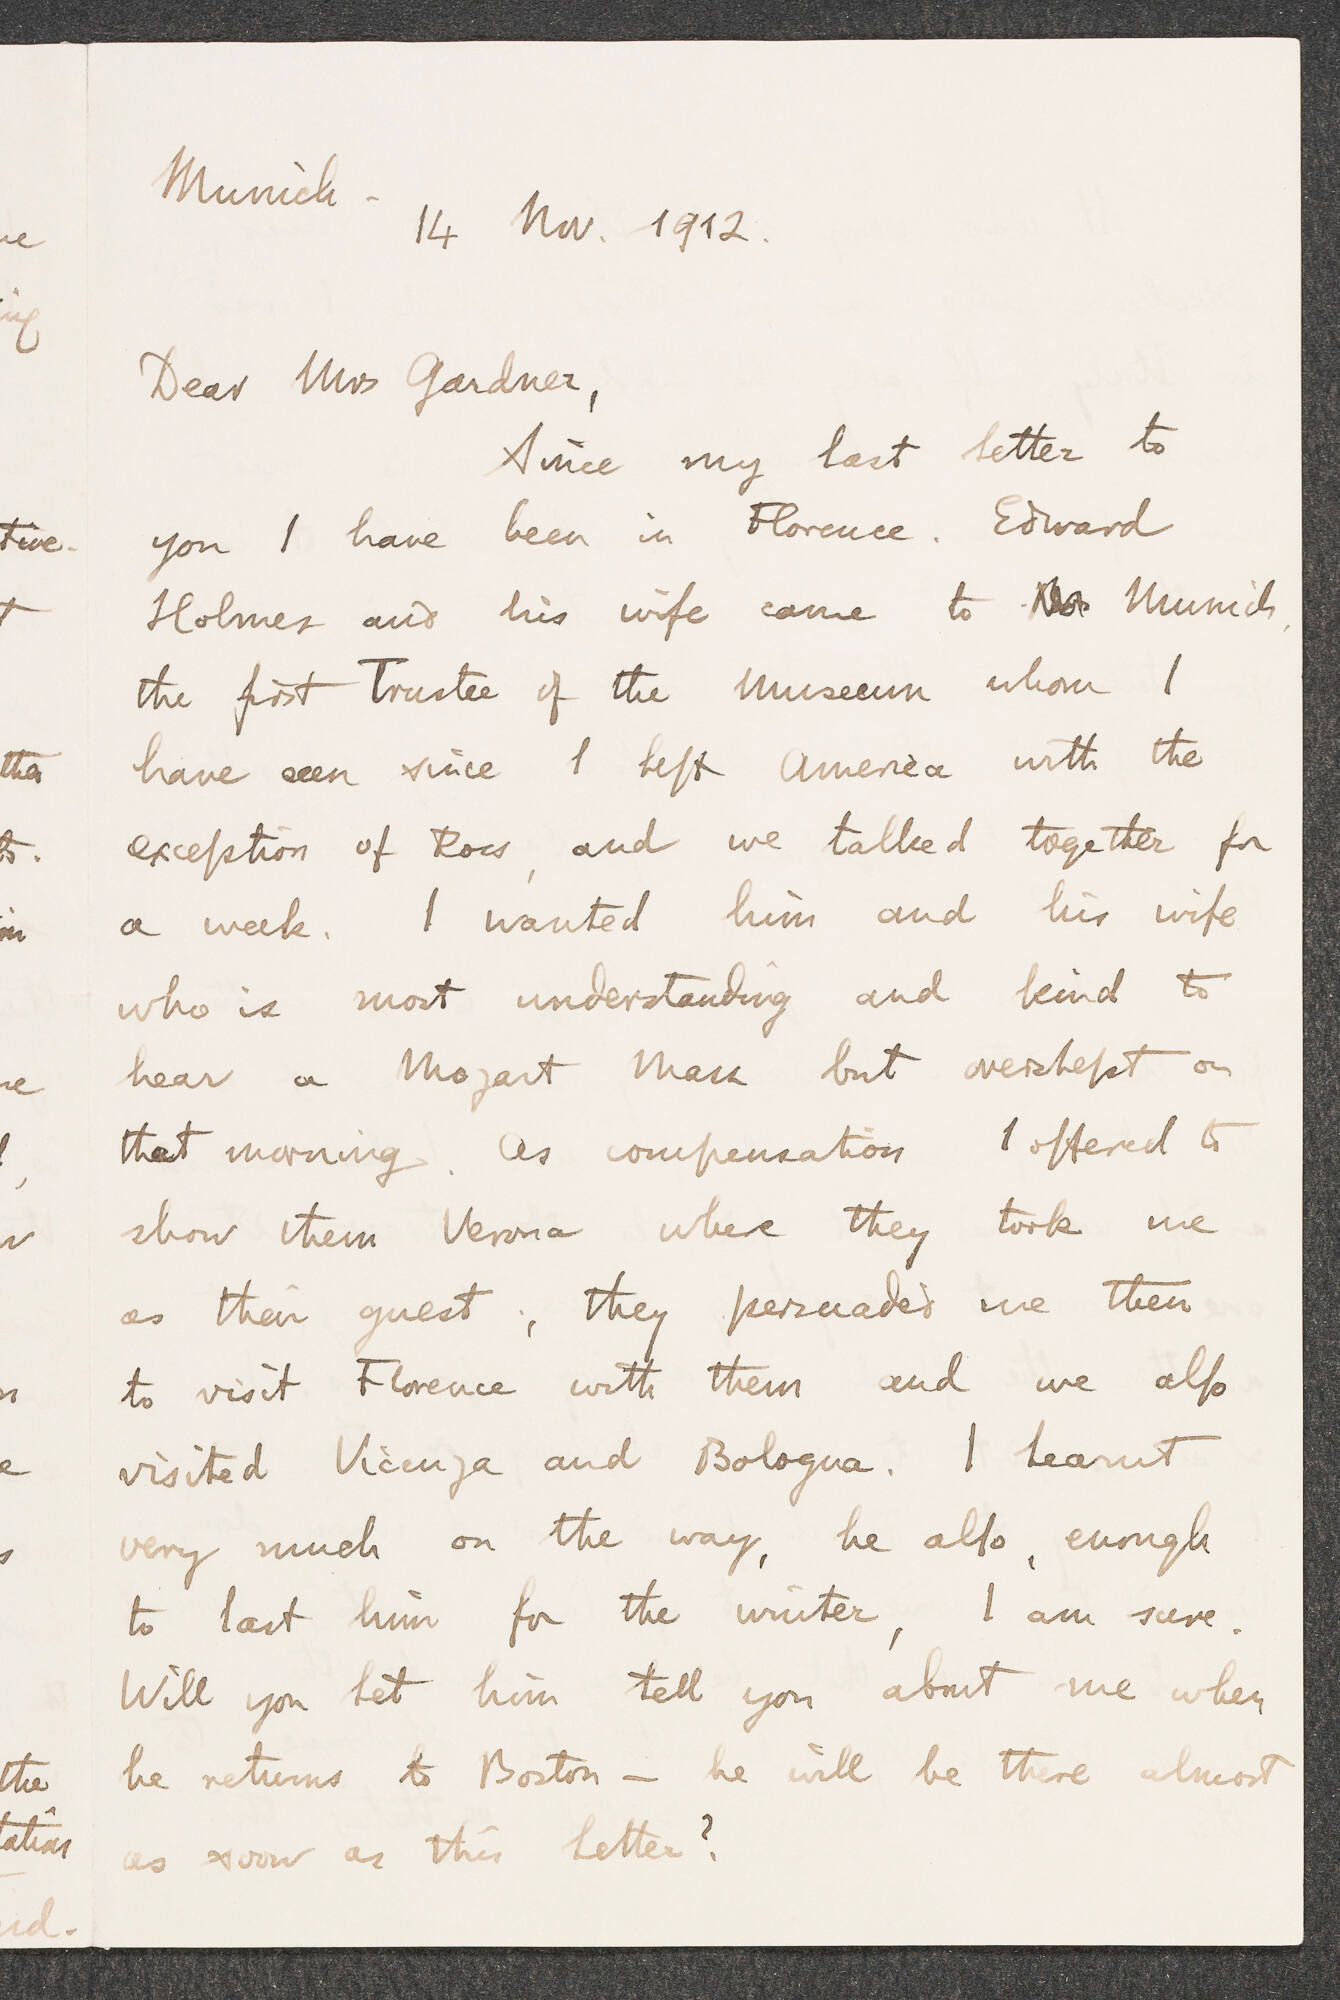 Munich -
14 Nov. 1912.
Dear Mrs Gardner,
Since my last letter to
you I have been in Florence. Edward
Holmes and his wife came to Munich,
the first Trustee of the Museum whom I
have seen since I left America with the
exception of Ross, and we talked together for
a week. I wanted him and his wife
who is most understanding and kind to
hear a Mozart Mass but overslept on
that morning. As compensation I offered to
show them Verona where they took me
as their guest; they persuaded me then
to visit Florence with them and we also
visited Vicenza and Bologna. I learnt
very much on the way, he also, enough
to last him for the winter, I am sure.
Will you let him tell you about me when
he returns to Boston — he will be there almost
as soon as this letter?